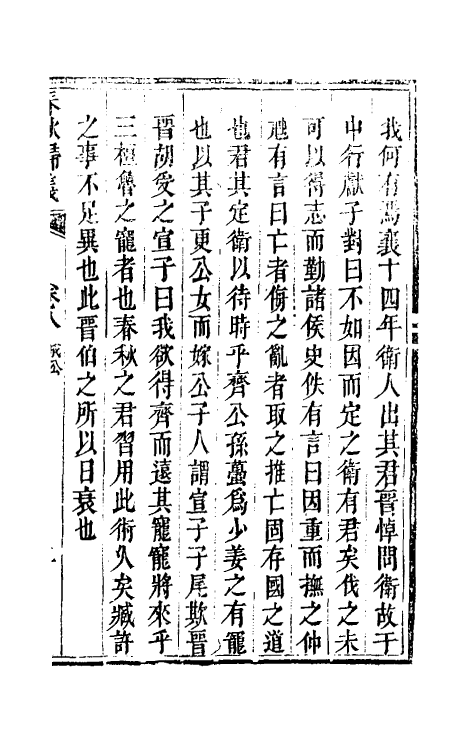 我何有焉襄十四年衛人出其君晉悼問衛故于
中行獻子對曰不如因而定之衛有君矣伐之未
可以得志而勤諸侯史佚有言曰因重而撫之仲
虺有言曰亡者侮之亂者取之推亡固存國之道
也君其定衛以待時乎齊公孫蠆爲少姜之有寵
也以其子更公女而嫁公子人謂宣子子尾欺晉
晉胡受之宣子曰我欲得齊而遠其寵寵將來乎
三桓魯之寵者也春秋之君習用此術久矣臧許
之事不足異也此晉伯之所以日衰也
春秋
卷八 成公